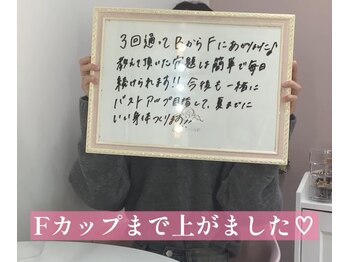 3回通ってBからFにあがりました♪
教えて頂いた宿題は簡単で毎日
続けられます!!今後も一緒に
バストアップ目指して、夏までに
いい身体つくります!!
Fカップまで上がました♡